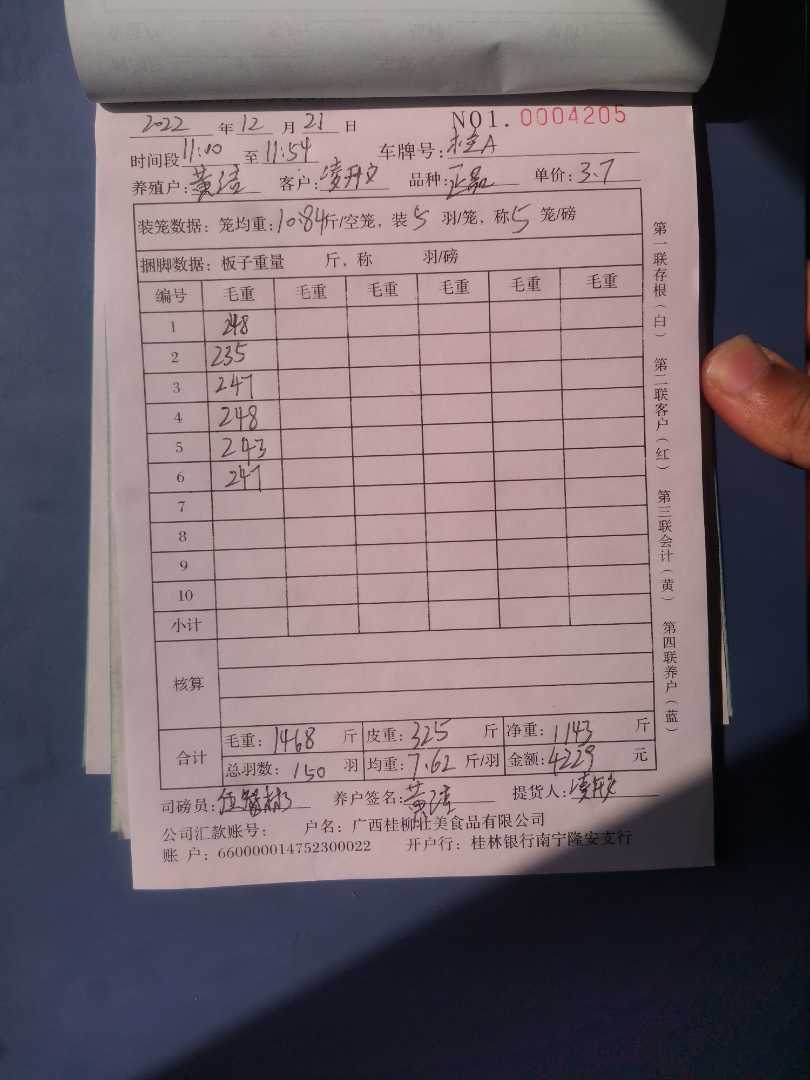 2022 年 12 月 21 日 NO1. 0004205
时间段 11:10 至 11:54 车牌号: 桂A
养殖户: 黄 客户: 凌升文 品种: 正品 单价: 3.7
装笼数据: 笼均重: 10.84 斤/空笼, 装 5 羽/笼, 称 5 笼/磅
捆脚数据: 板子重量 斤, 称 羽/磅
编号 毛重 毛重 毛重 毛重 毛重 毛重
1 248
2 235
3 247
4 248
5 243
6 247
7
8
9
10
小计
核算
合计
毛重: 1468 斤 皮重: 325 斤 净重: 1143 斤
总羽数: 150 羽 均重: 7.62 斤/羽 金额: 4229 元
司磅员: 养户签名: 黄 提货人: 凌升文
公司汇款账号: 户名: 广西桂柳壮美食品有限公司
账 户: 660000014752300022 开户行: 桂林银行南宁隆安支行
第一联存根(白) 第二联客户(红) 第三联会计(黄) 第四联养户(蓝)